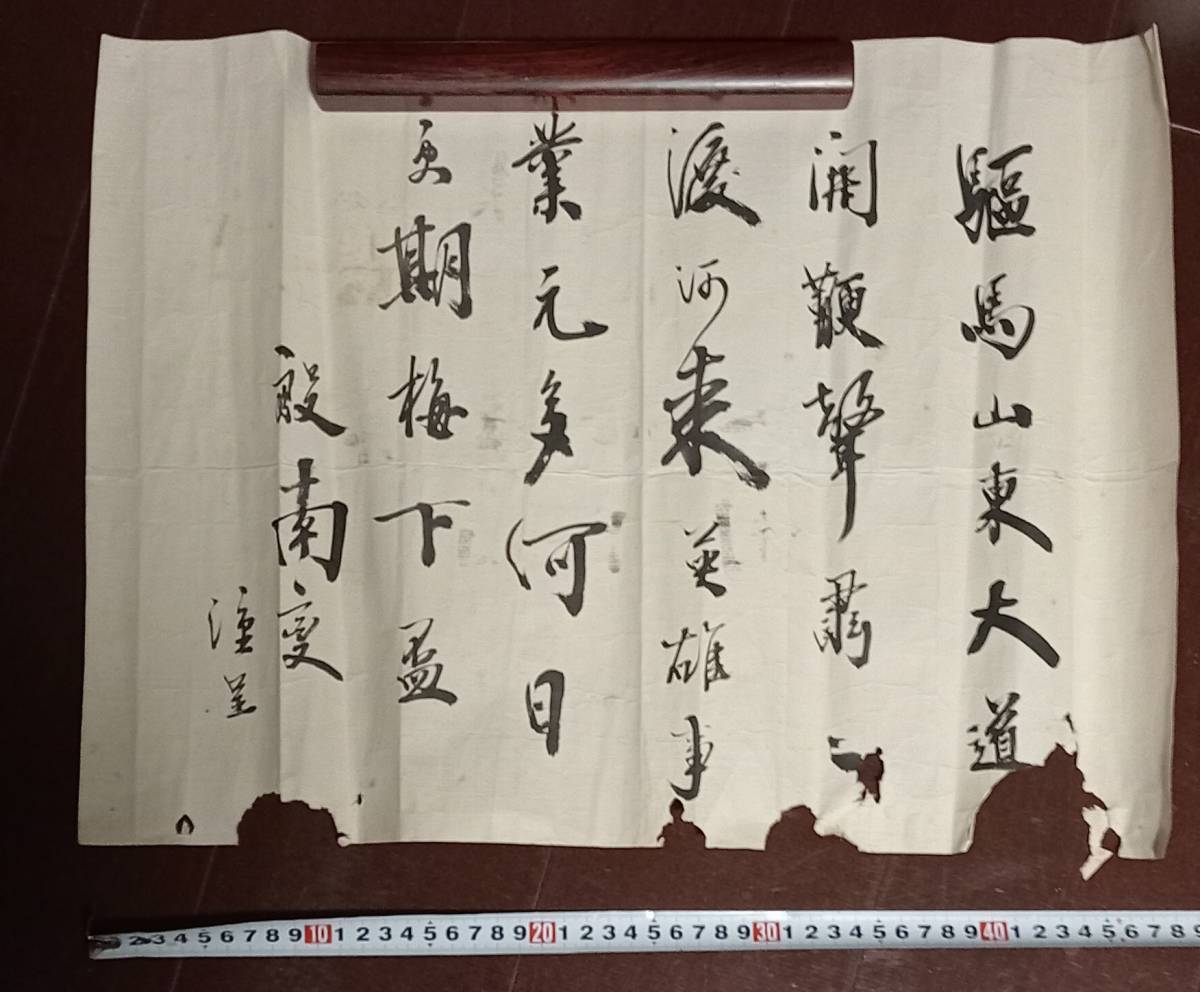 驅馬山東大道
開鞭聲肅
渡河来英雄事
業元多何日
更期梅下盃
南
呈
2 3 4 5 6 7 8 9 10 1 2 3 4 5 6 7 8 9 20 1 2 3 4 5 6 7 8 9 30 1 2 3 4 5 6 7 8 9 40 1 2 3 4 5 6 7 8 9